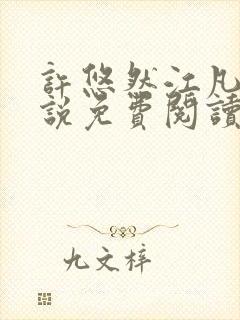 許悠然江凡
說免費閱讀
九文梓